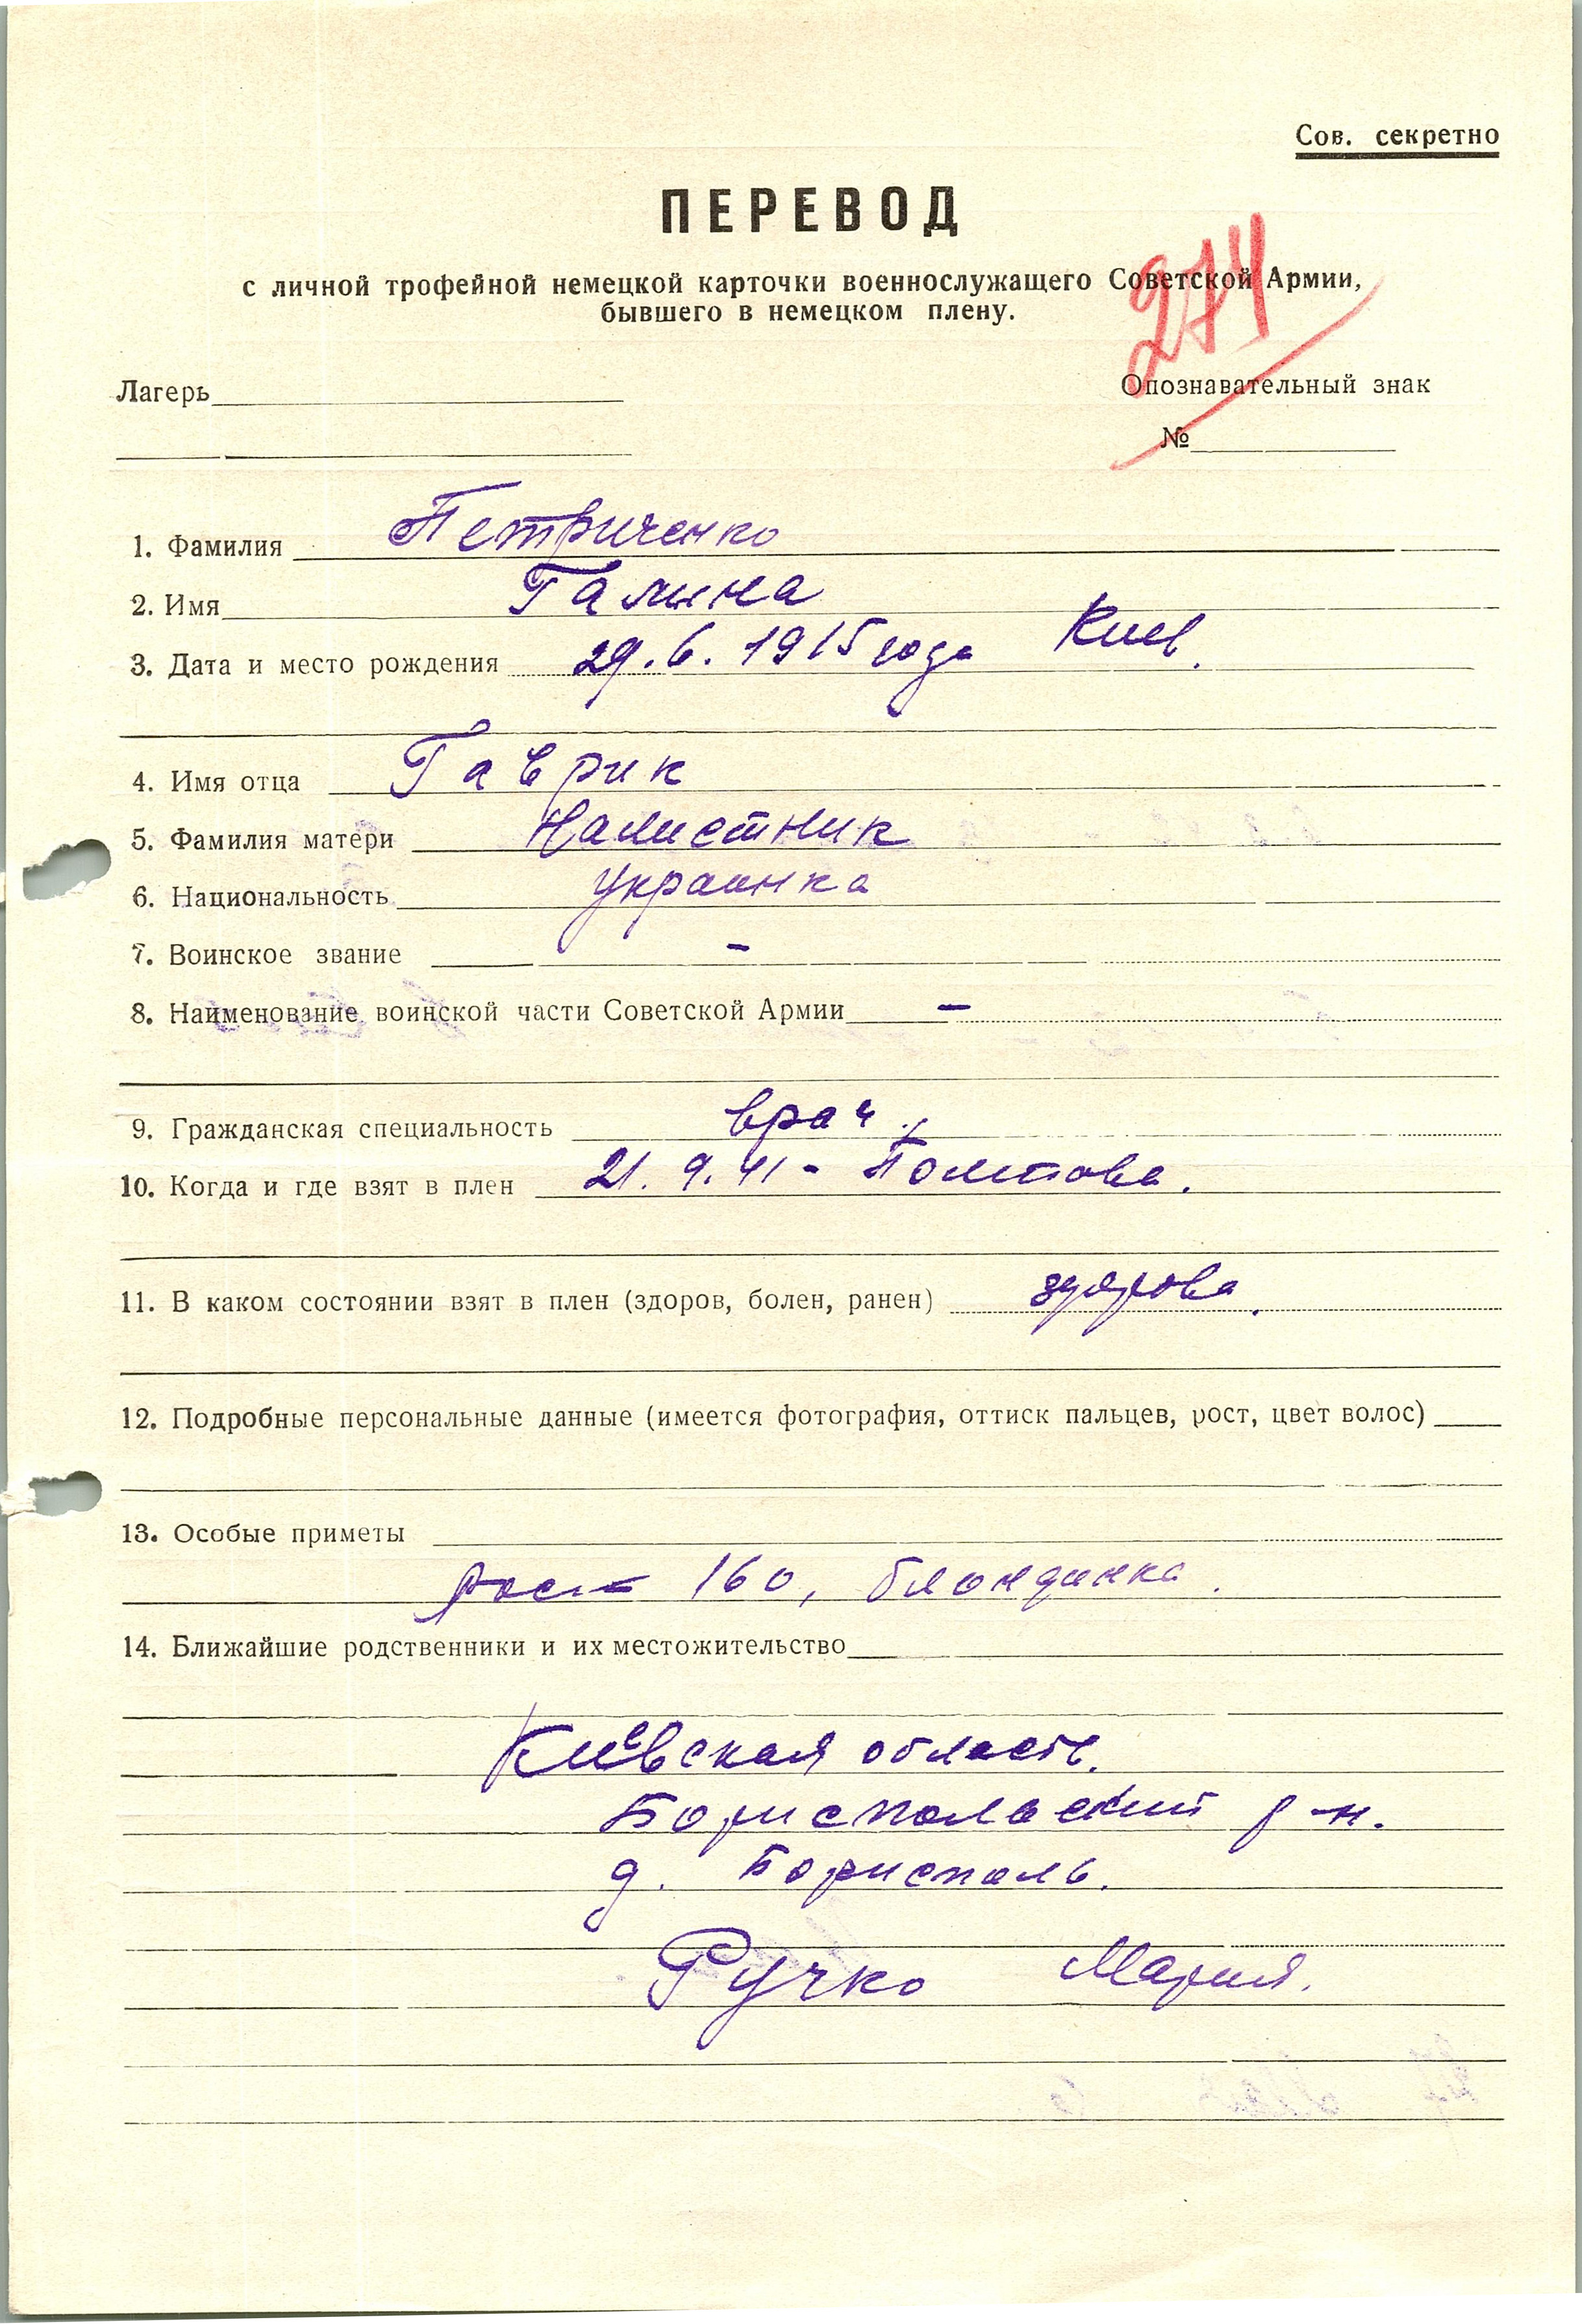 Сов. секретно
ПЕРЕВОД
с личной трофейной немецкой карточки военнослужащего Советской Армии,
бывшего в немецком плену.
274
Лагерь
Опознавательный знак
№
1. Фамилия Петриченко
2. Имя Галина
3. Дата и место рождения 29.6.1915 года Киев.
4. Имя отца Гаврик
5. Фамилия матери Налистник
6. Национальность Украинка
7. Воинское звание -
8. Наименование воинской части Советской Армии -
9. Гражданская специальность врач.
10. Когда и где взят в плен 21.9.41 - Полтава.
11. В каком состоянии взят в плен (здоров, болен, ранен) здорова.
12. Подробные персональные данные (имеется фотография, оттиск пальцев, рост, цвет волос)
13. Особые приметы
рост 160, блондинка.
14. Ближайшие родственники и их местожительство
Киевская область.
Бориспольский р-н.
д. Борисполь.
Ручко Мария.